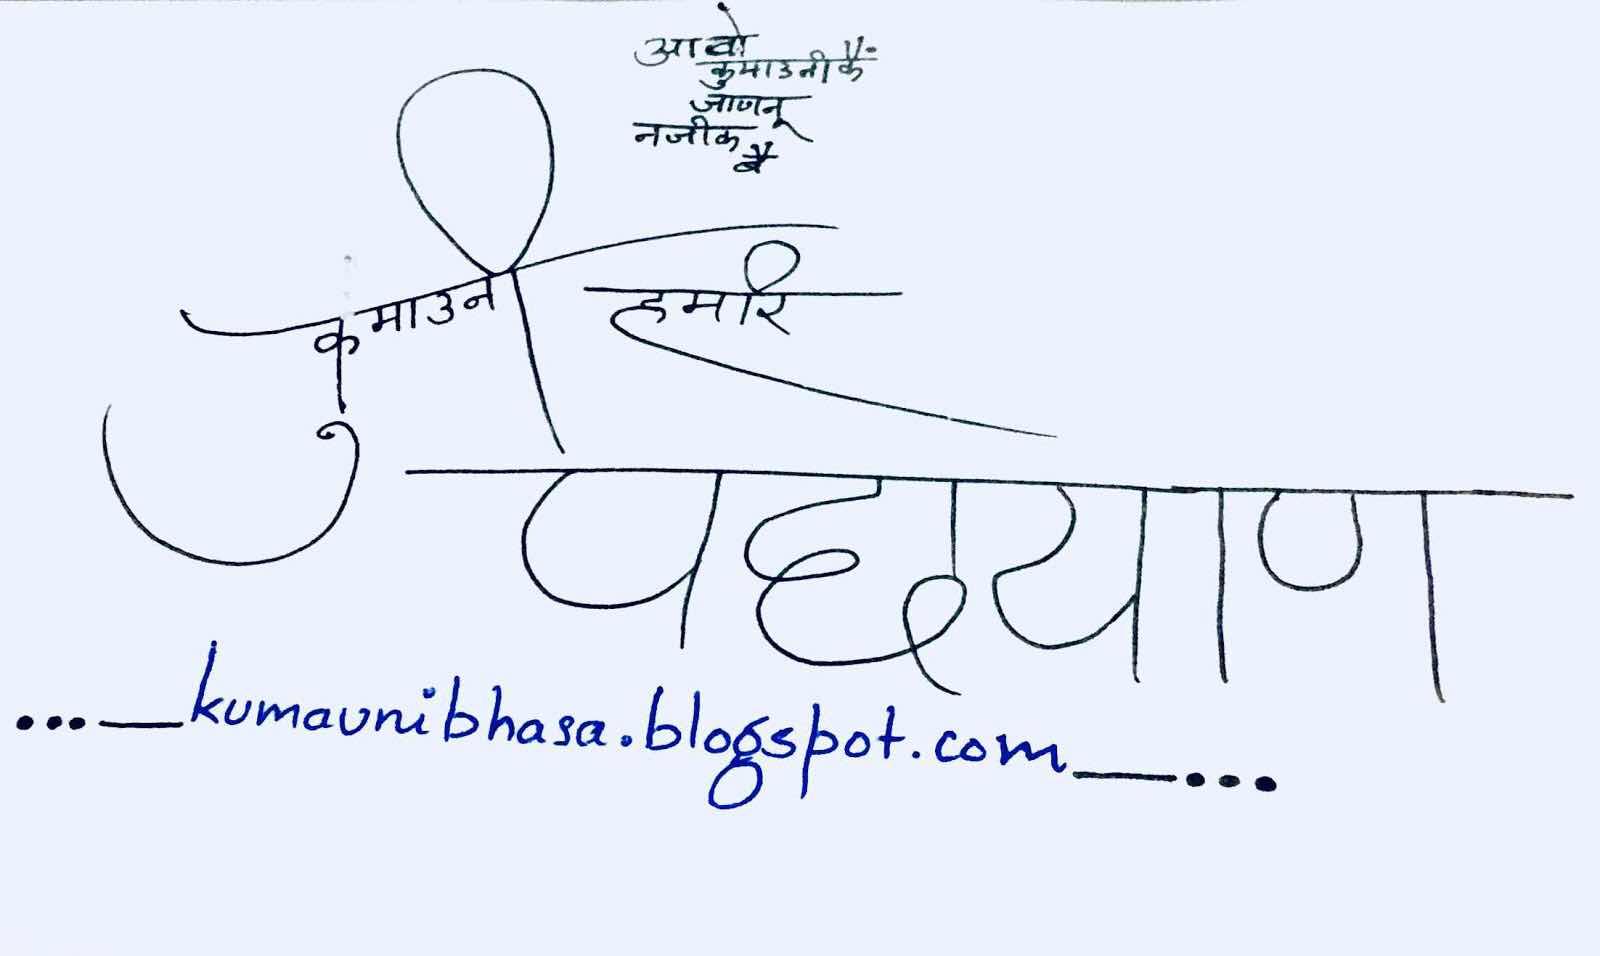 आवो
कुमाउनी कैं
जाणनू
नजीक
बै
कुमाउनी
हमरि
पछ्याण
...__kumaunibhasa.blogspot.com__...